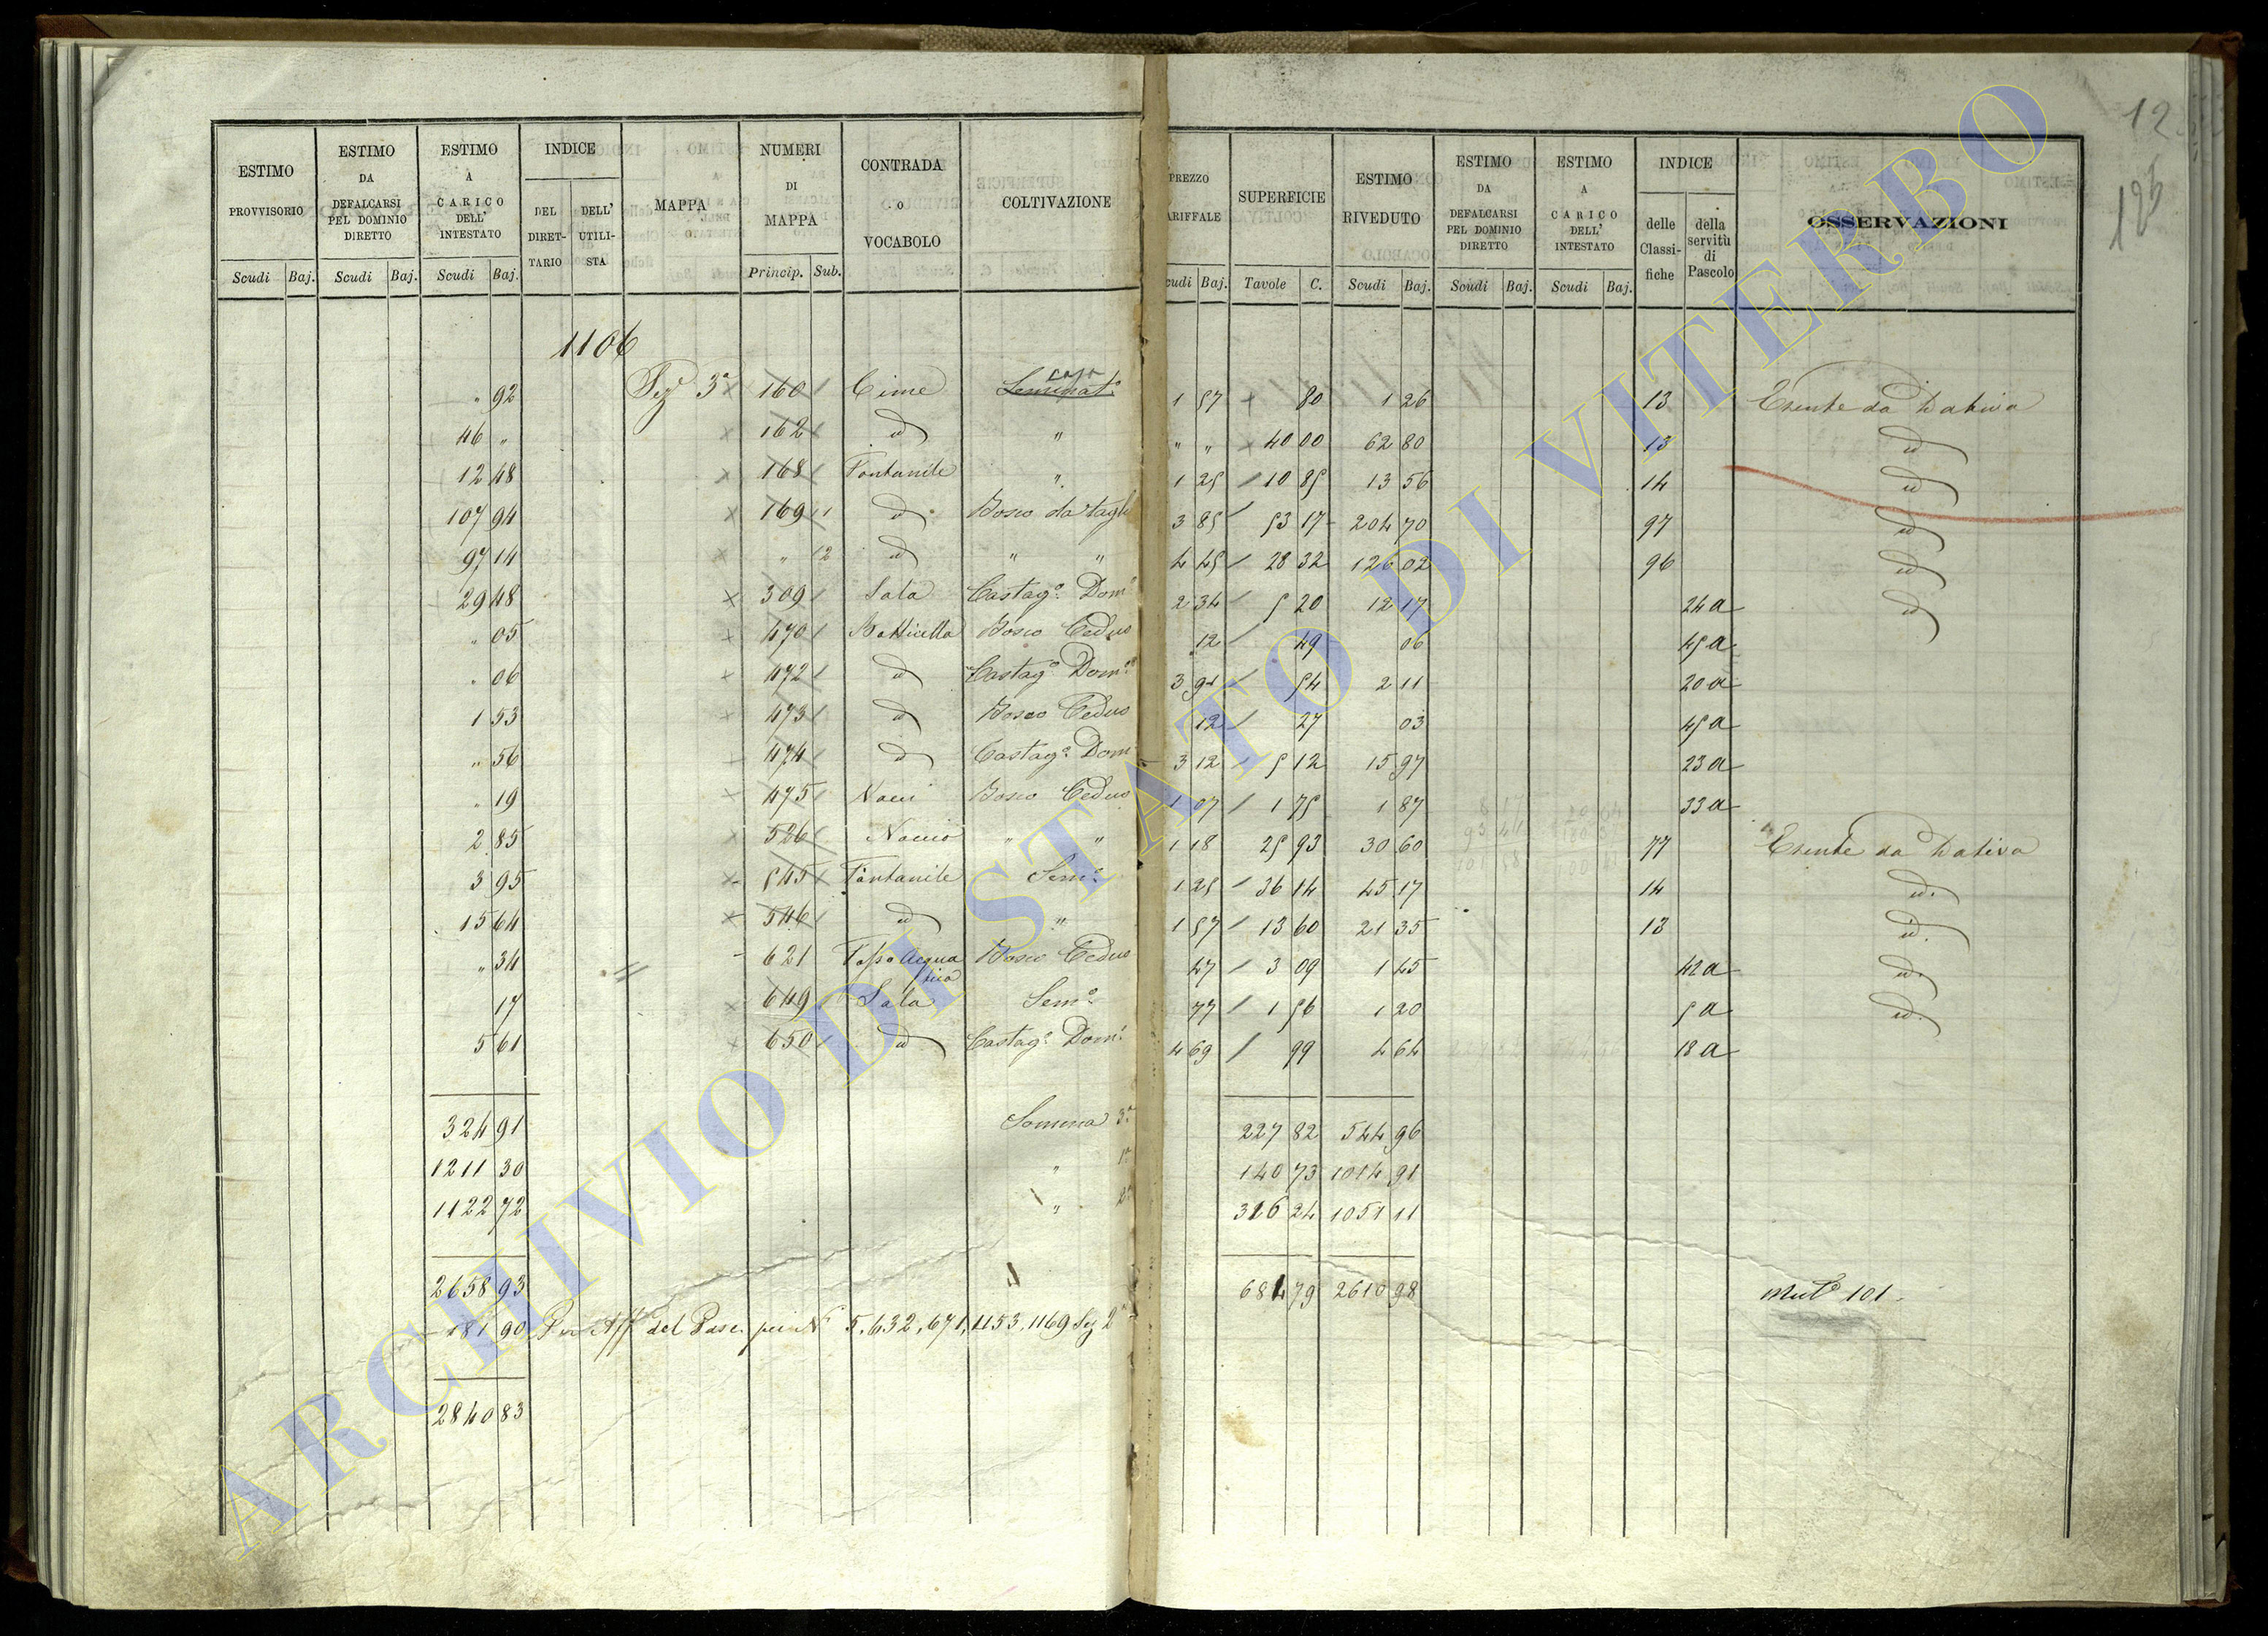 12
126
ESTIMO PROVVISORIO
ESTIMO DA DEFALCARSI PEL DOMINIO DIRETTO
ESTIMO A CARICO DELL' INTESTATO
INDICE
DEL DIRET-TARIO
DELL' UTILI-STA
MAPPA
NUMERI DI MAPPA
CONTRADA o VOCABOLO
COLTIVAZIONE
PREZZO
ARIFFALE
SUPERFICIE
ESTIMO RIVEDUTO
ESTIMO DA DEFALCARSI PEL DOMINIO DIRETTO
ESTIMO A CARICO DELL' INTESTATO
INDICE
delle Classi-fiche
della servitù di Pascolo
OSSERVAZIONI
Scudi Baj. Scudi Baj. Scudi Baj. Princip. Sub. cudi Baj. Tavole C. Scudi Baj. Scudi Baj. Scudi Baj.
1106
" 92 Sez 3ª 160 Cime Seminatº casa 1 57 80 1 26 13 Esente da Dativa
46 " 162 id " " " 40 00 62 80 13 id
12 48 168 Fontanile " 1 25 10 85 13 56 14 id
107 94 169 1 id Bosco da tagl 3 85 53 17 204 70 97 id
97 14 " 2 id " " 4 45 28 32 126 02 96 id
29 48 309 Sala Castagº Domº 2 34 5 20 12 17 24 a id
" 05 470 Botticella Bosco Ceduo 12 49 06 45 a
" 06 472 id Castagº Domº 3 91 54 2 11 20 a
1 53 473 id Bosco Ceduo 12 27 03 45 a
" 56 474 id Castagº Dom 3 12 5 12 15 97 23 a
" 19 475 Nocci Bosco Ceduo 1 07 1 75 1 87 33 a
2 85 526 Noccio " " 1 18 25 93 30 60 77 Esente da Dativa
3 95 545 Fontanile Semº 1 25 36 14 45 17 14 id.
15 64 546 id " 1 57 13 60 21 35 13 id.
" 34 621 Fosso Acqua Bosco Ceduo 47 3 09 1 45 42 a id.
17 649 Sala Semº 77 1 56 1 20 5 a id.
5 61 650 id Castagº Domº 4 69 99 4 64 18 a
324 91 Somma 3ª 227 82 544 96
1211 30 " 1ª 140 73 1014 91
1122 72 " 2ª 316 24 1051 11
2658 93 684 79 2610 98 Mutº 101.
181 90 Per Aff del Pasc. pei Nº 5.632, 671, 1153, 1169 Sez 2ª
2840 83
ARCHIVIO DI STATO DI VITERBO